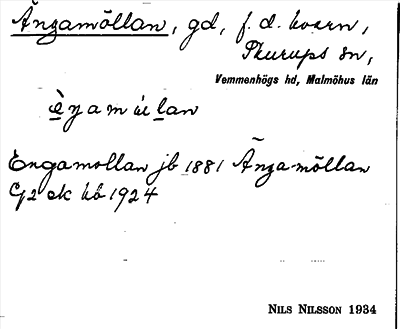 Ängamöllan, gd, f. d. kvarn,
Skurups sn,
Vemmenhögs hd, Malmöhus län
Engamollan jb 1881 Ängamöllan
G2 ek kb 1924
NILS NILSSON 1934